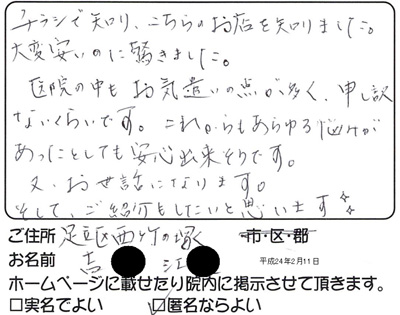 チラシで知り、こちらのお店を知りました。
大変安いのに驚きました。
医院の中もお気遣いの点が多く、申し訳
ないくらいです。これからもあらゆる悩みが
あったとしても安心出来そうです。
又、お世話になります。
そして、ご紹介もしたいと思います
ご住所 足立区西竹の塚 市・区・郡
お名前 吉 江 平成24年2月11日
ホームページに載せたり院内に掲示させて頂きます。
□実名でよい ☑匿名ならよい